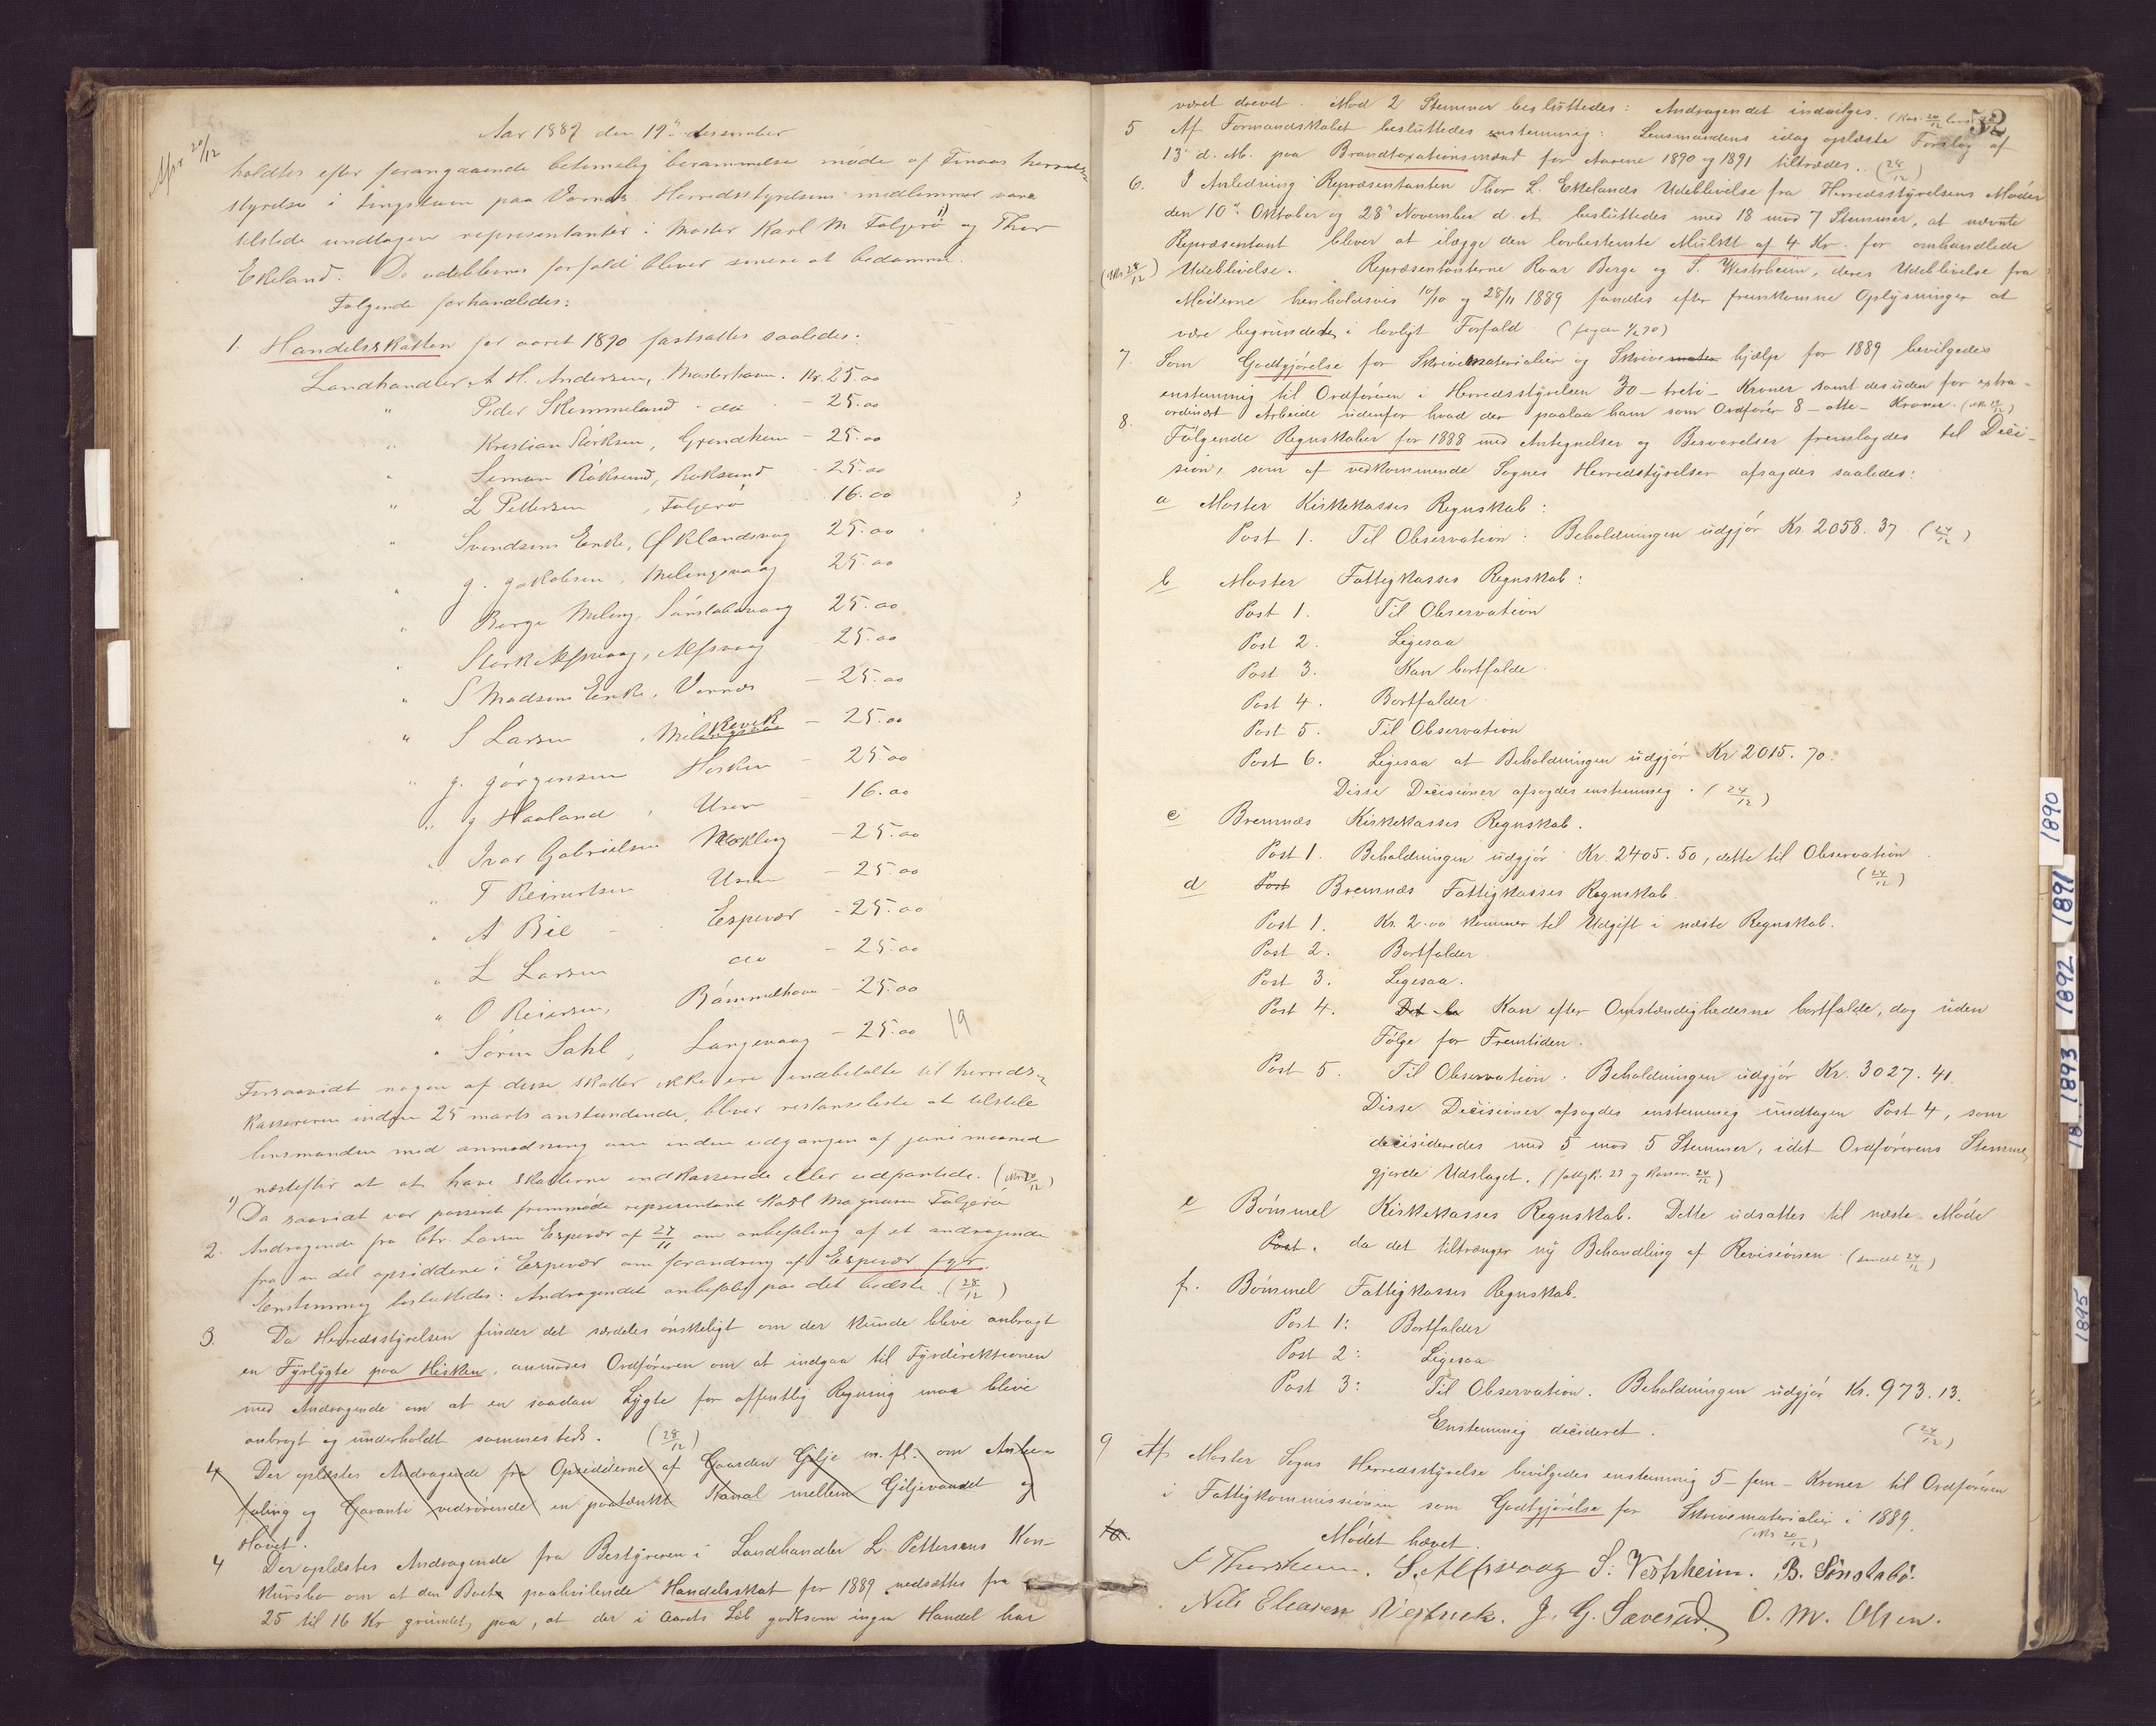 Aar 1889 den 19de desember
Afsr 20/12
holdtes efter forangaaende betimelig berammelse møde af Finaas herreds-
styrelse i tingstuen paa Vornes. Herredsstyrelsens medlemmer vare
tilstede undtagen representanter i Moster Karl M Folgerø 1) og Thor
Ekeland. De udeblevnes forfald bliver senere at bedømme.
Følgende forhandledes:
1. Handelsskatten for aaret 1890 fastsattes saaledes:
Landhandler A H. Andersen, Mosterhavn. Kr. 25.00
" Peder Skimmeland - do - 25.00
" Kristian Størksen, Grindheim - 25.00
" Simon Røksund, Røksund - 25.00
" L Pettersen, Folgerø 16.00
" Svendsens Enke, Øklandsvag 25.00
" J. Jakobsen, Melingsvaag 25.00
" Børge Meling, Sønstabøvaag 25.00
" Størk Alfsvaag, Alfsvaag - 25.00
" S Madsens Enke, Vornes - 25.00
" S Larsen, Melkevik - 25.00
" J. Jørgensen Hisken - 25.00
" J Haaland, Uren - 16.00
" Ivar Gabrielsen Mækling - 25.00
" T Reinertsen Uren - 25.00
" A Bie - Espevær - 25.00
" L Larsen do - 25.00
" O Reiersen, Bømmelhavn - 25.00
" Søren Sahl, Langevaag - 25.00 19
Forsaavidt nogen af disse skatter ikke ere indbetalte til herreds-
kassereren inden 25 marts anstundende, bliver restanseliste at tilstille
lensmanden med anmodning om inden udgangen af juni maaned
næstefter at at have skatterne indkasserede eller udpantede. (afs 20/12)
1) Da saavidt var passeret fremmødte representant Karl Magnusen Folgerø
2. Andragende fra Chr. Larsen Espevær af 27/11 om anbefaling af et andragende
fra en del opsiddere i Espevær om forandring af Espevær fyr.
Enstemmig besluttedes: Andragendet anbefales paa det bedste. (28/12)
3. Da Herredsstyrelsen finder det særdeles ønskeligt om der kunde blive anbragt
en Fyrlygte paa Hisken, anmodes Ordføreren om at indgaa til Fyrdirektionen
med Andragende om at en saadan Lygte for offentlig Regning maa blive
anbragt og underholdt sammesteds. (28/12)
4 Der oplæstes Andragende fra Opsidderne af Gaarden Gilje m. fl. om Anbe-
faling og Garanti vedrørende en paatænkt Kanal mellem Giljevandet og
Havet.
4 Der oplæstes Andragende fra Bestyreren i Landhandler L. Pettersens Kon-
kursbo om at den Boet paahvilende Handelsskat for 1889 nedsættes fra
25 til 16 Kr grundet paa, at der i Aarets Løb godtsom ingen Handel har
52
været drevet. Mod 2 Stemmer besluttedes: Andragendet indvilges. (Kas. 20/12
5 Af Formandskabet besluttedes enstemmig: Lensmandens idag oplæste Forslag af
13de d. M. paa Brandtaxationsmænd for Aarene 1890 og 1891 tiltrædes. (24/12)
6. I Anledning Repræsentanten Thor L. Ekelands Udeblivelse fra Herredsstyrelsens Møder
den 10de Oktober og 28de November d. A. besluttedes med 18 mod 7 Stemmer, at nævnte
Repræsentant bliver at ilægge den lovbestemte Mulkt af 4 Kr. for omhandlede
(Afs 24/12) Udeblivelse. Repræsentanterne Roar Berge og S. Westrheim, deres Udeblivelse fra
Møderne henholdsvis 10/10 og 28/11 1889 fandtes efter fremkomne Oplysninger at
være begrundede i lovligt Forfald (fogden 1/2 90)
7. Som Godtgjørelse for Skrivematerialier og Skrivemater hjælp for 1889 bevilgedes
enstemmig til Ordføreren i Herredsstyrelsen 30 - treti - Kroner samt desuden for extra-
ordinært Arbeide udenfor hvad der paalaa ham som Ordfører 8 - otte - Kroner.
8. Følgende Regnskaber for 1888 med Antegnelser og Besvarelser fremlagdes til Deci-
sion, som af vedkommende Sognes Herredstyrelser afsagdes saaledes:
a Moster Kirkekasses Regnskab:
Post 1. Til Observation. Beholdningen udgjør Kr. 2058. 37 (24/12)
b Moster Fattigkasses Regnskab:
Post 1. Til Observation
Post 2. Ligesaa
Post 3. Kan bortfalde.
Post 4. Bortfalder.
Post 5. Til Observation
Post 6. Ligesaa at Beholdningen udgjør Kr 2015. 70.
Disse Decisioner afsagdes enstemmig. (24/12)
c Bremnæs Kirkekasses Regnskab.
Post 1. Beholdningen udgjør Kr. 2405. 50, dette til Observation
(24/12)
d Post Bremnæs Fattigkasses Regnskab.
Post 1. Kr. 2.00 kommer til Udgift i næste Regnskab.
Post 2. Bortfalder.
Post 3. Ligesaa.
Post 4. Det Kan efter Omstændighederne bortfalde, dog uden
Følge for Fremtiden.
Post 5. Til Observation. Beholdningen udgjør Kr. 3027. 41.
Disse Decisioner afsagdes enstemmig undtagen Post 4, som
decisideredes med 5 mod 5 Stemmer, idet Ordførerens Stemme
gjorde Udslaget. (fattigk. 23 og Kasser. 24/12)
e Bømmel Kirkekasses Regnskab. Dette udsattes til næste Møde
Post. da det tiltrænger ny Behandling af Revisionen (sendt 24/12)
f. Bømmel Fattigkasses Regnskab.
Post 1: Bortfalder
Post 2: Ligesaa
Post 3: Til Observation. Beholdningen udgjør Kr. 973. 13.
Enstemmig decideret. (24/12)
9 Af Moster Sogns Herredsstyrelse bevilgedes enstemmig 5 - fem - Kroner til Ordføreren
i Fattigkommissionen som Godtgjørelse for Skrivematerialier i 1889.
(Afs 20/12)
10. Mødet hævet.
S. Alfsvaag S. Vestrheim. B. Sønstabø.
Nils Eleasen J. G. Sæverud. O. M. Olsen.
1890
1891
1892
1893
18
1895